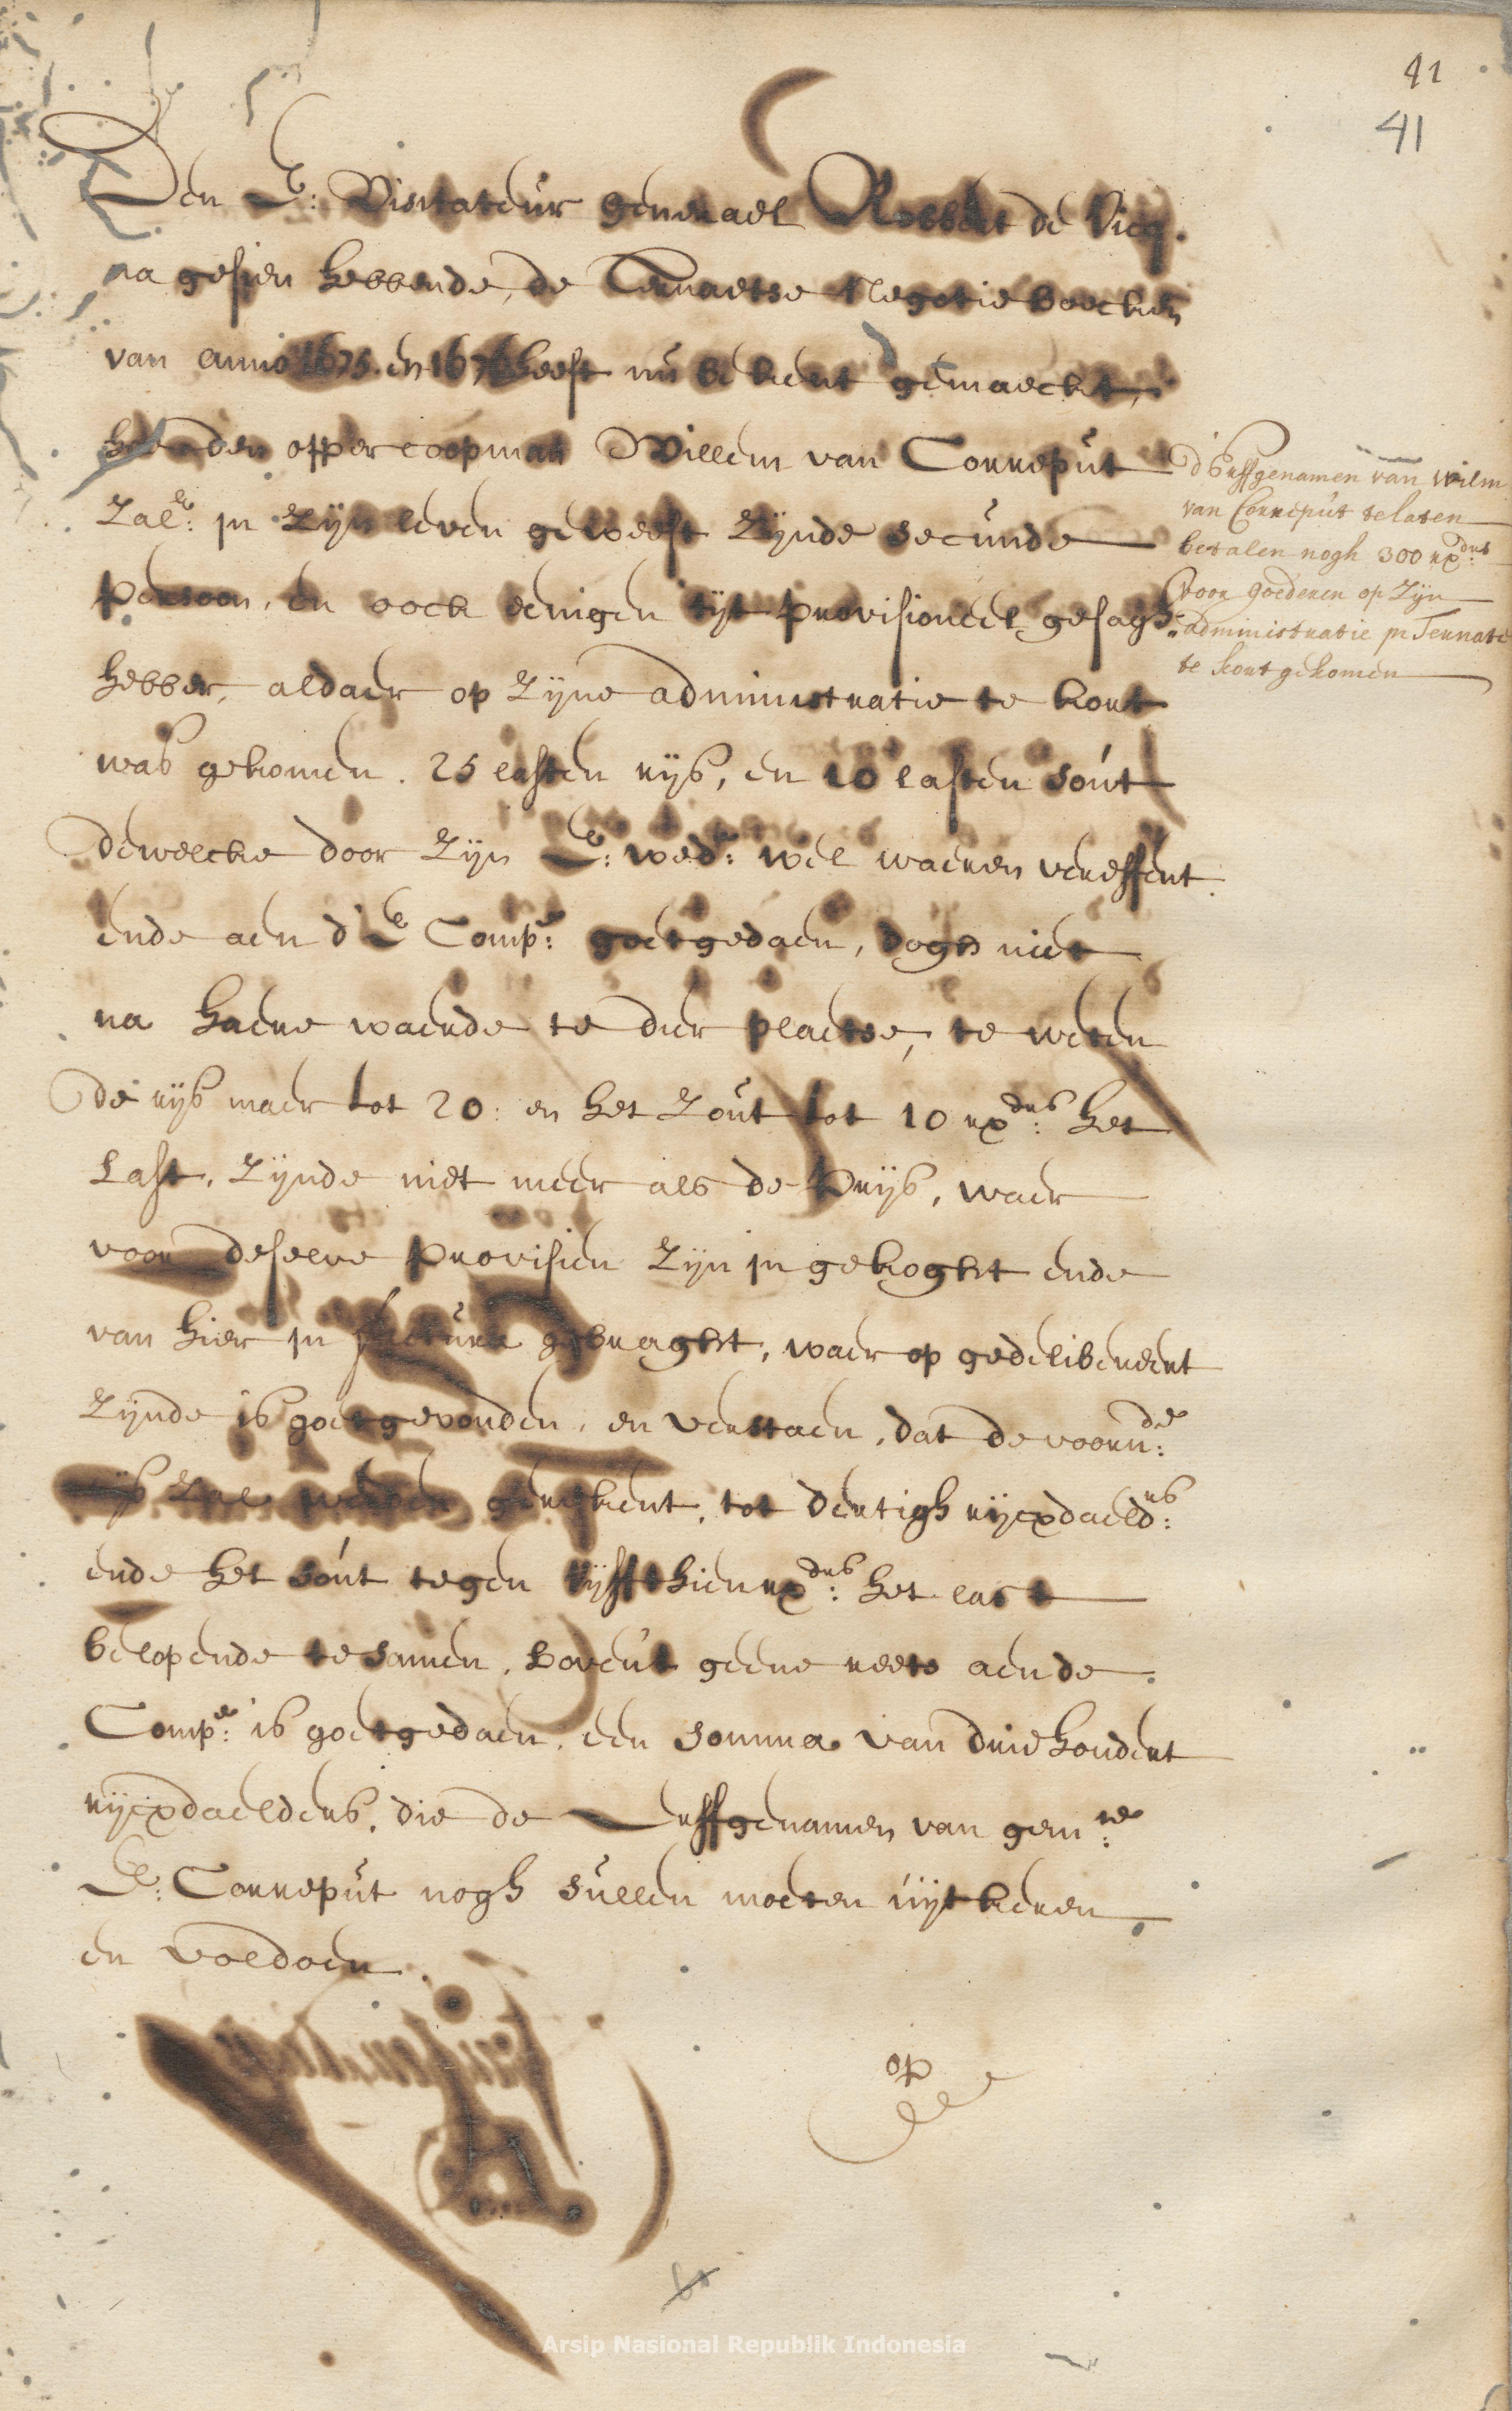 41
41
Den E: Visitateur generael Robbert de Vicq.
na gesien hebbende, de Ternaetse Negotie boecken
van anno 1675. en 1676 heeft nu bekent gemaeckt,
hoe den opper coopman Willem van Corneput
Zalr: in zijn leven geweest zijnde secunde
Persoon, en oock eenigen tijt provisioneel gesagh„
hebber, aldaer op zijne administratie te kort
was gekomen. 25 lasten rijs, en 10 lasten sout
dewelcke door zijn E: wed.e: wel waeren vereffent
ende aen d'E Comp.e: goetgedaen, dogh niet
na haere waerde te dier plaetse, te weten
de rijs maer tot 20: en het zout tot 10 rxdrs: het
Last, zijnde niet meer als de prijs, waer
voor deselve provisien zijn in gekoght ende
van hier in factura gebraght, waer op gedelibereert
zijnde is goetgevonden, en verstaen, dat de voorn:de
rijs zal werden gereekent, tot dertigh rijcxdaeld:rs
ende het sout tegen vijfthien rxdrs: het last
belopende te samen, boven 't geene reets aen de
Comp.e: is goetgedaen, een somma van driehondert
rijcxdaelders, die de Erffgenamen van gem:te
E: Corneput nogh sullen moeten uijtkeren
en voldoen.
op
d'Erffgenamen van Wilm
van Corneput te laten
betalen nogh 300 rxdrs:
voor goederen op zijn
administratie in Ternate
te kort gekomen
Arsip Nasional Republik Indonesia